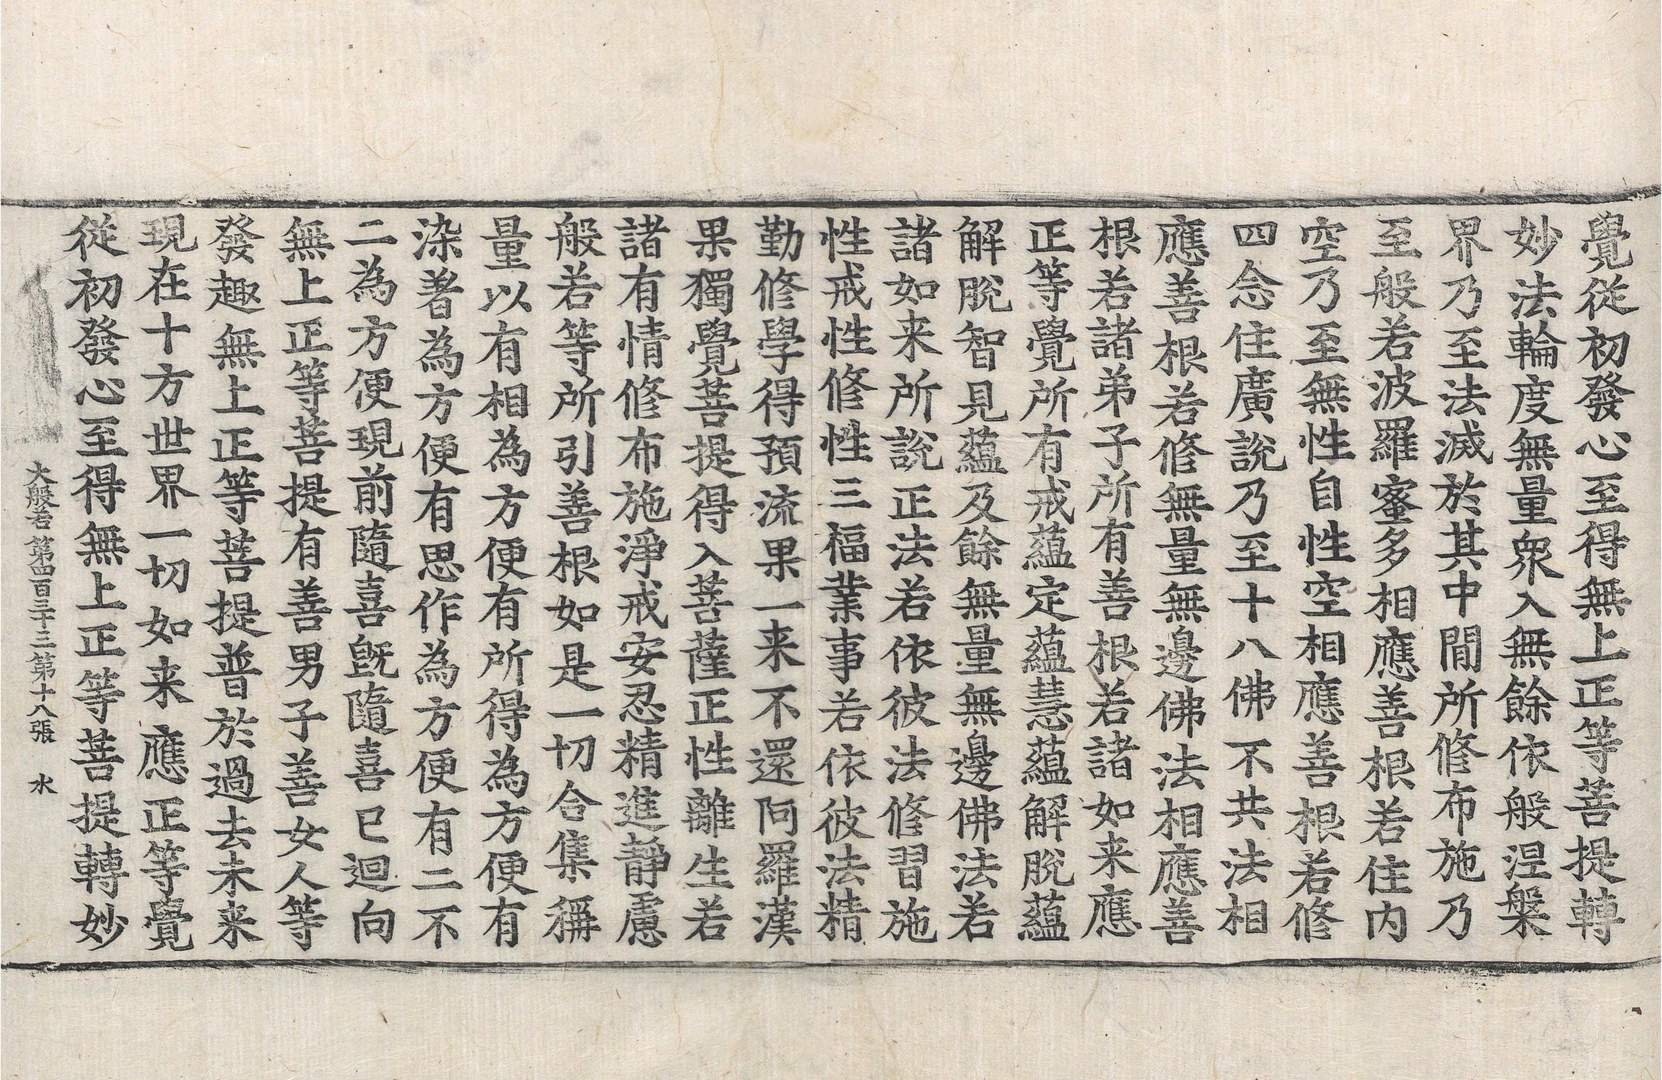 覺從初發心至得無上正等菩提轉
妙法輪度無量衆入無餘依般涅槃
界乃至法滅於其中間所修布施乃
至般若波羅蜜多相應善根若住內
空乃至無性自性空相應善根若修
四念住廣說乃至十八佛不共法相
應善根若修無量無邊佛法相應善
根若諸弟子所有善根若諸如来應
正等覺所有戒蘊定蘊慧蘊解脫蘊
解脫智見蘊及餘無量無邊佛法若
諸如来所說正法若依彼法修習施
性戒性修性三福業事若依彼法精
勤修學得預流果一来不還阿羅漢
果獨覺菩提得入菩薩正性離生若
諸有情修布施淨戒安忍精進靜慮
般若等所引善根如是一切合集稱
量以有相為方便有所得為方便有
染著為方便有思作為方便有二不
二為方便現前隨喜旣隨喜已迴向
無上正等菩提有善男子善女人等
發趣無上正等菩提普於過去未来
現在十方世界一切如来應正等覺
從初發心至得無上正等菩提轉妙
大般若第四百三十三第十八張 水